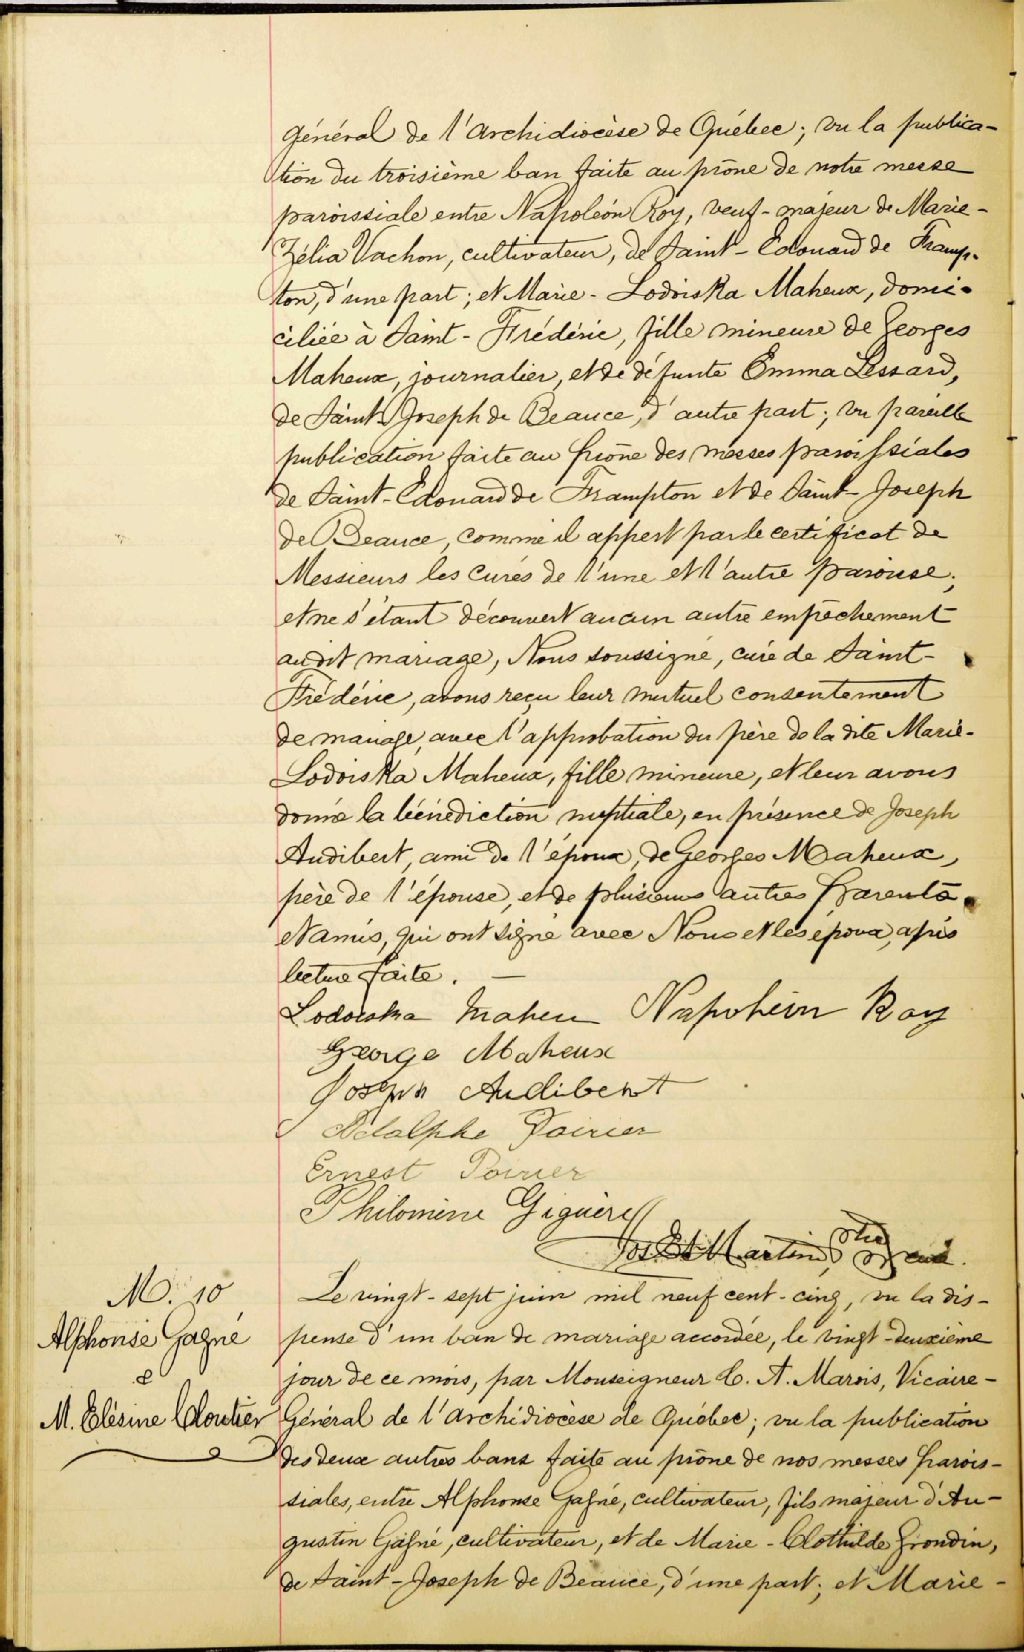 Général de l'Archidiocèse de Québec; vu la publica-
tion du troisième ban faite au prône de notre messe
paroissiale entre Napoléon Roy, veuf-majeur de Marie-
Zélia Vachon, cultivateur, de Saint-Edouard de Framp-
ton, d'une part; et Marie-Lodoiska Maheux, domi-
ciliée à Saint-Frédéric, fille mineure de Georges
Maheux, journalier, et de défunte Emma Lessard,
de Saint-Joseph de Beauce, d'autre part; vu pareille
publication faite au prône des messes paroissiales
de Saint-Edouard de Frampton et de Saint-Joseph
de Beauce, comme il appert par le certificat de
Messieurs les curés de l'une et l'autre paroisse;
et ne s'étant découvert aucun autre empêchement
au dit mariage, Nous soussigné, curé de Saint-
Frédéric, avons reçu leur mutuel consentement
de mariage, avec l'approbation du père de la dite Marie-
Lodoiska Maheux, fille mineure, et leur avons
donné la bénédiction nuptiale, en présence de Joseph
Audibert, ami de l'époux, de Georges Maheux,
père de l'épouse, et de plusieurs autres parents
et amis, qui ont signé avec Nous et les époux, après
lecture faite. —
Lodoiska Maheu Napoléon Roy
George Maheux
Joseph Audibert
Adolphe Poirier
Ernest Poirier
Philomène Giguère
Jos. Et. Martin, ptre curé.
M. 10
Alphonse Gagné
&
M. Elésine Cloutier
Le vingt-sept juin mil neuf cent-cinq, vu la dis-
pense d'un ban de mariage accordée, le vingt-deuxième
jour de ce mois, par Monseigneur C. A. Marois, Vicaire-
Général de l'Archidiocèse de Québec; vu la publication
des deux autres bans faite au prône de nos messes parois-
siales, entre Alphonse Gagné, cultivateur, fils majeur d'Au-
gustin Gagné, cultivateur, et de Marie-Clothilde Grondin,
de Saint-Joseph de Beauce, d'une part; et Marie-